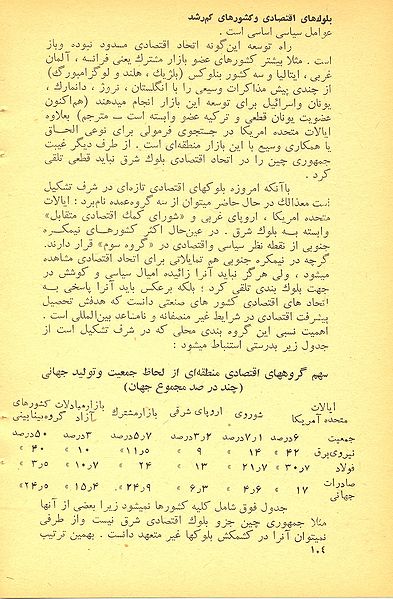 بلوك‌های اقتصادی و کشورهای کم‌رشد
عوامل سیاسی اساسی است .
راه توسعه این‌گونه اتحاد اقتصادی مسدود نبوده و باز
است . مثلا بیشتر کشورهای عضو بازار مشترك یعنی فرانسه ، آلمان
غربی ، ایتالیا و سه کشور بنلوکس (بلژیك ، هلند و لوگزامبورگ)
از چندی پیش مذاکرات وسیعی را با انگلستان ، نروژ ، دانمارك ،
یونان و اسرائیل برای توسعه این بازار انجام میدهند (هم‌اکنون
عضویت یونان قطعی و ترکیه عضو وابسته است ــ مترجم) بعلاوه
ایالات متحده امریکا در جستجوی فرمولی برای نوعی الحاق
یا همکاری وسیع با این بازار منطقه‌ای است . از طرف دیگر غیبت
جمهوری چین را در اتحاد اقتصادی بلوك شرق نباید قطعی تلقی
کرد .
باآنکه امروزه بلوکهای اقتصادی تازه‌ای در شرف تشکیل
است معذالك در حال حاضر میتوان از سه گروه‌عمده نام‌برد ؛ ایالات
متحده امریکا ، اروپای غربی و «شورای کمك اقتصادی متقابل»
وابسته بــه بلوك شرق . در عین‌حال اکثر کشورهــای نیمکــره
جنوبی از نقطه نظر سیاسی واقتصادی در «گروه سوم» قرار دارند.
گرچه در نیمکره جنوبی هم تمایلاتی برای اتحاد اقتصادی مشاهده
میشود ، ولی هرگز نباید آنرا زائیده امیال سیاسی و کوشش در
جهت بلوك بندی تلقی کرد ؛ بلکه برعکس باید آنرا پاسخی بــه
اتحاد های اقتصادی کشور های صنعتی دانست که هدفش تحصیل
پیشرفت اقتصادی در شرایط غیر منصفانه و نامساعد بین‌المللی است .
اهمیت نسبی این گروه بندی محلی که در شرف تشکیل است از
جدول زیر بدرستی استنباط میشود :
سهم گروههای اقتصادی منطقه‌ای از لحاظ جمعیت وتولید جهانی
(چند در صد مجموع جهان)
ایالات متحده آمریکا شوروی اروپای شرقی بازارمشترك بازارمبادلات آزاد کشورهای گروه بینابینی
جمعیت ۶درصد ۷ر۱درصد ۳ر۲درصد ۵ر۷درصد ۳درصد ۵۰درصد
نیروی‌برق ۴۲ » ۱۴ » ۹ » ۵ر۱۱» ۱۰ » ۴۰ »
فولاد ۷ر۳۰ » ۷ر۲۱ » ۱۳ » ۲۴ » ۷ر۱۰ » ۳ر۵ »
صادرات جهانی ۱۷ » ۴ر۶ » ۶ر۳ » ۹ر۲۴ » ۴ر۱۵ » ۵ر۲۴»
جدول فوق شامل کلیه کشورها نمیشود زیرا بعضی از آنها
مثلا جمهوری چین جزو بلوك اقتصادی شرق نیست واز طرفی
نمیتوان آنرا در کشمکش بلوکها غیر متعهد دانست . بهمین ترتیب
۱۰۴